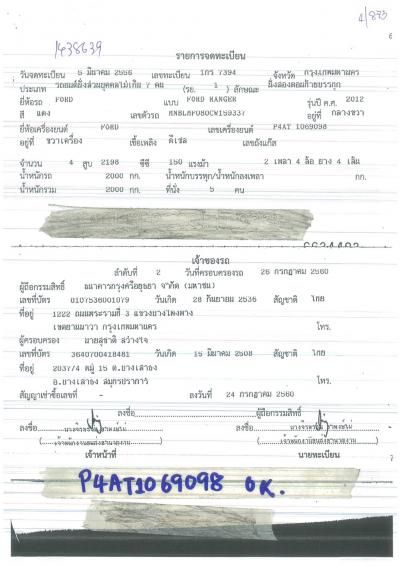 1438639
4/893
6
รายการจดทะเบียน
วันจดทะเบียน 5 มีนาคม 2556 เลขทะเบียน 1กร 7394 จังหวัด กรุงเทพมหานคร
ประเภท รถยนต์นั่งส่วนบุคคลไม่เกิน 7 คน (รย. 1) ลักษณะ นั่งสองตอนท้ายบรรทุก
ยี่ห้อรถ FORD แบบ FORD RANGER รุ่นปี ค.ศ. 2012
สี แดง เลขตัวรถ อยู่ที่ กลางขวา
ยี่ห้อเครื่องยนต์ FORD เลขเครื่องยนต์ P4AT 1069098
อยู่ที่ ขวาเครื่อง เชื้อเพลิง ดีเซล เลขถังแก๊ส
จำนวน 4 สูบ 2198 ซีซี 150 แรงม้า 2 เพลา 4 ล้อ ยาง 4 เส้น
น้ำหนักรถ 2000 กก. น้ำหนักบรรทุก/น้ำหนักลงเพลา กก.
น้ำหนักรวม 2000 กก. ที่นั่ง 5 คน
เจ้าของรถ
ลำดับที่ 2 วันที่ครอบครองรถ 26 กรกฎาคม 2560
ผู้ถือกรรมสิทธิ์ ธนาคารกรุงศรีอยุธยา จำกัด (มหาชน)
เลขที่บัตร 0107536001079 วันเกิด 28 กันยายน 2536 สัญชาติ ไทย
ที่อยู่ 1222 ถนนพระรามที่ 3 แขวงบางโพงพาง
เขตยานนาวา กรุงเทพมหานคร โทร.
ผู้ครอบครอง นายสุชาติ สว่างใจ
เลขที่บัตร 3640700418481 วันเกิด 15 มีนาคม 2508 สัญชาติ ไทย
ที่อยู่ 2037/4 หมู่ 15 ต.บางเสาธง
อ.บางเสาธง สมุทรปราการ โทร.
สัญญาเช่าซื้อเลขที่ - ลงวันที่ 24 กรกฎาคม 2560
ลงชื่อ ผู้ถือกรรมสิทธิ์
ลงชื่อ ลงชื่อ
เจ้าหน้าที่ นายทะเบียน
P4AT1069098 OK.